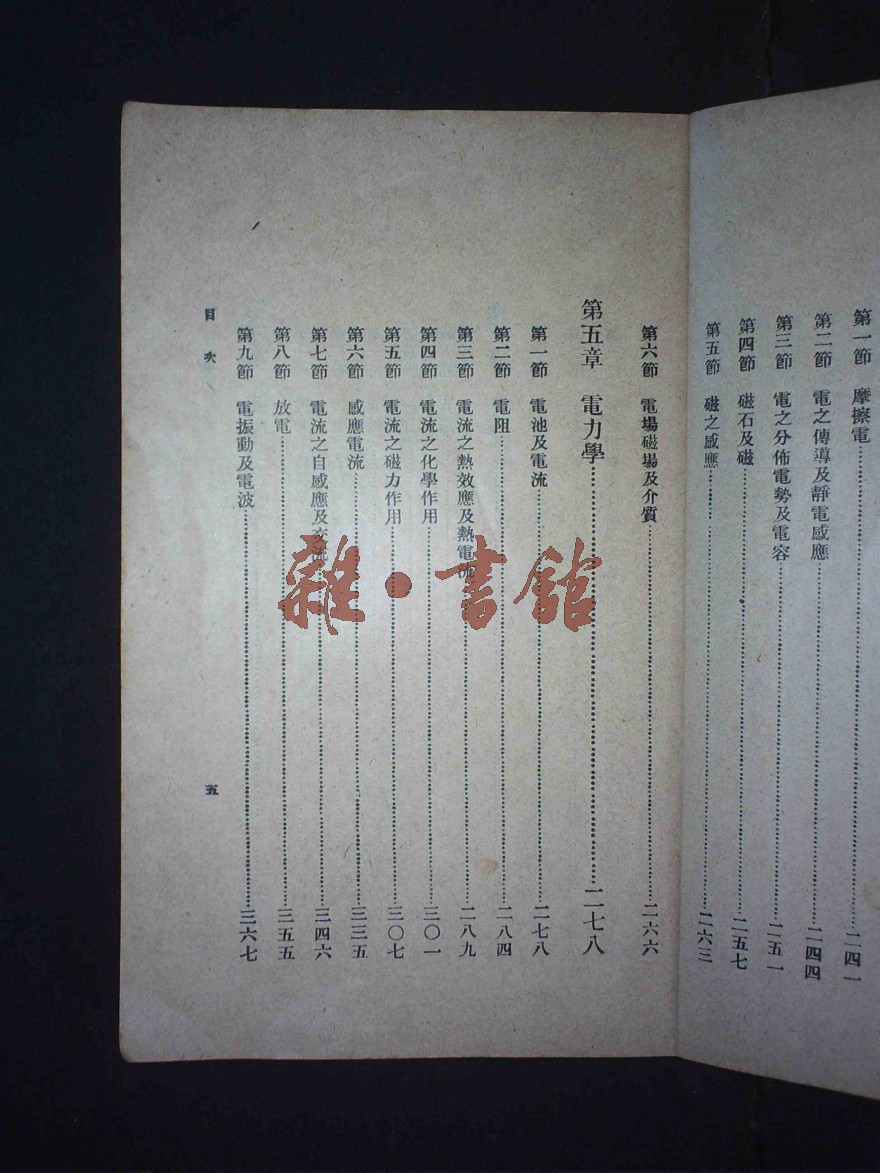 第一節 摩擦電……二四一
第二節 電之傳導及靜電感應……二四四
第三節 電之分佈電勢及電容……二五一
第四節 磁石及磁……二五七
第五節 磁之感應……二六三
第六節 電場磁場及介質……二六六
第五章 電力學……二七八
第一節 電池及電流……二七八
第二節 電阻……二八四
第三節 電流之熱效應及熱電流……二八九
第四節 電流之化學作用……三〇一
第五節 電流之磁力作用……三〇七
第六節 感應電流……三三五
第七節 電流之自感應及交流……三四六
第八節 放電……三五五
第九節 電振動及電波……三六七
目次
五
雜·書館